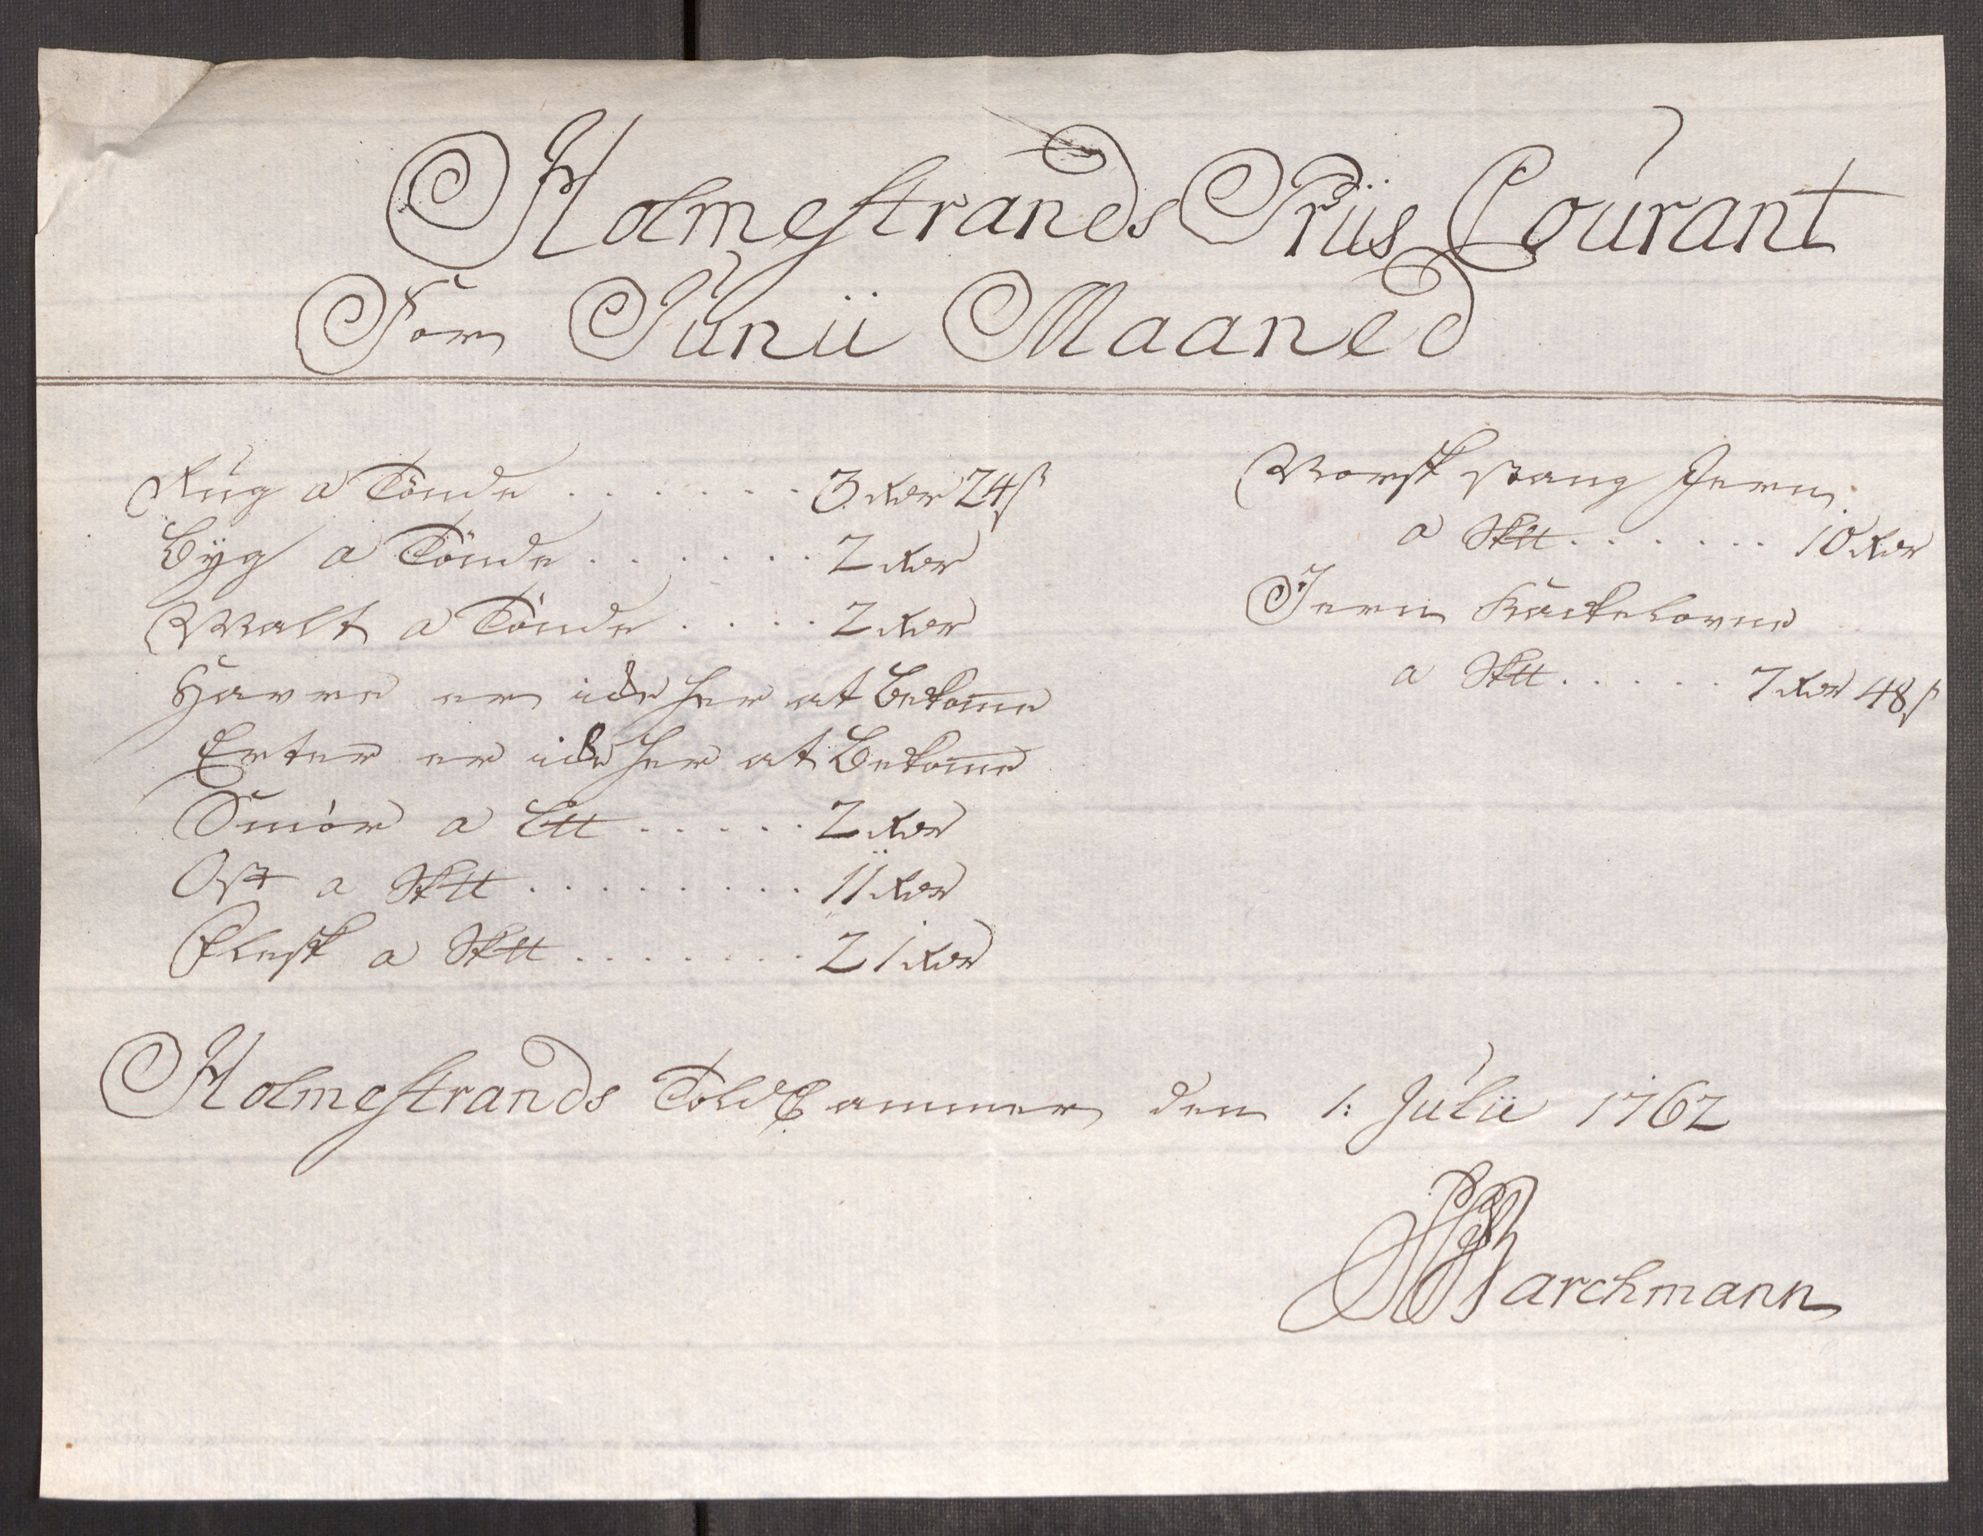 Holmestrands Priis Courant
For Junii Maaned
Rug a Tönde . . . . . . . 3 Rdr 24 ß
Byg a Tönde . . . . . . . 2 Rdr
Malt a Tönde . . . . . 2 Rdr
Havre er icke her at bekomme
Erter er icke her at Bekomme
Smör a L℔ . . . . . . 2 Rdr
Ost a Sk℔ . . . . . . . . . 11 Rdr
Flesk a Sk℔ . . . . . . . . 21 Rdr
Norsk Stang Jern
a Sk℔ . . . . . . . 10 Rdr
Jern Kackelovne
a Sk℔ . . . . . . 7 Rdr 48 ß
Holmestrands Told Cammer den 1: Julii 1762
Barchmann